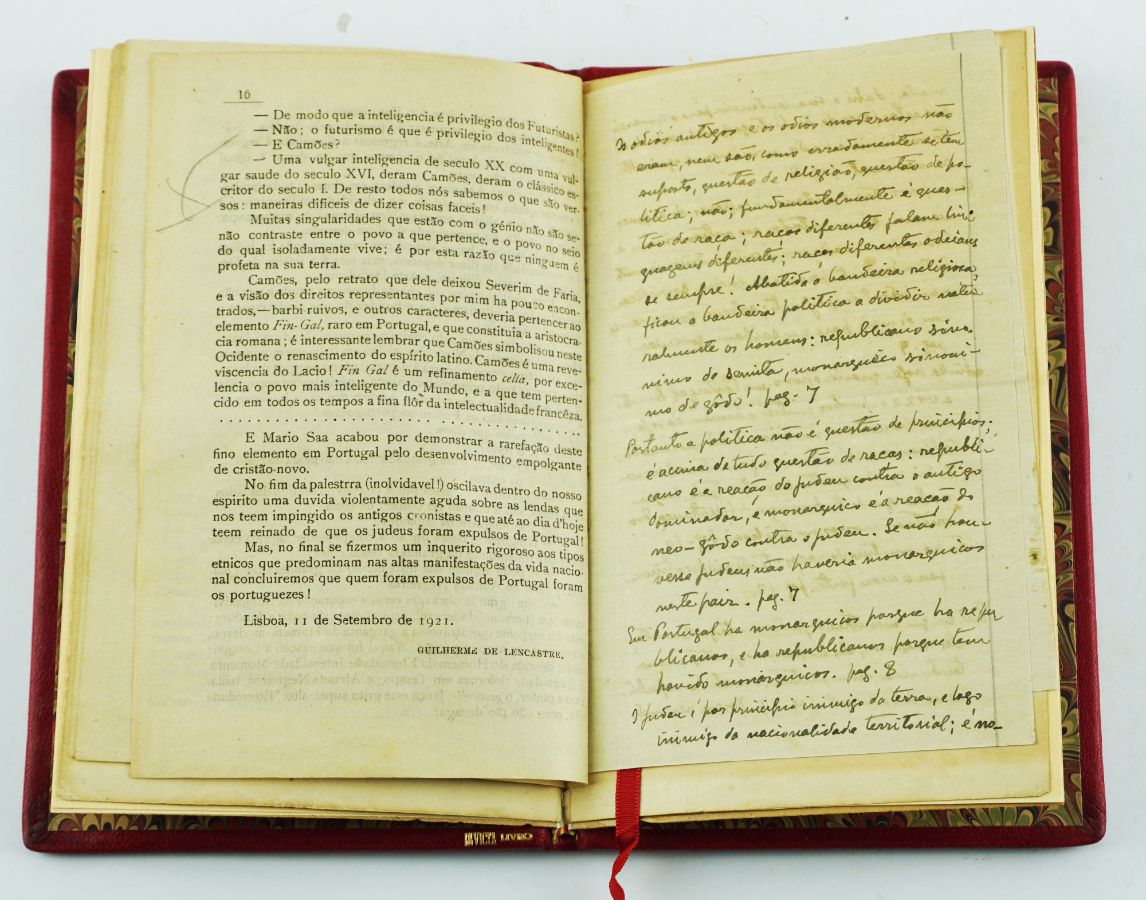 16
— De modo que a inteligencia é privilegio dos Futuristas?
— Não; o futurismo é que é privilegio dos inteligentes!
— E Camões?
— Uma vulgar inteligencia de seculo XX com uma vul-
gar saude do seculo XVI, deram Camões, deram o clássico es-
critor do seculo I. De resto todos nós sabemos o que são ver-
sos: maneiras dificeis de dizer coisas faceis!
Muitas singularidades que estão com o génio não são se-
não contraste entre o povo a que pertence, e o povo no seio
do qual isoladamente vive; é por esta razão que ninguem é
profeta na sua terra.
Camões, pelo retrato que dele deixou Severim de Faria,
e a visão dos direitos representantes por mim ha pouco encon-
trados,—barbi ruivos, e outros caracteres, deveria pertencer ao
elemento Fin-Gal, raro em Portugal, e que constituia a aristocra-
cia romana; é interessante lembrar que Camões simbolisou neste
Ocidente o renascimento do espírito latino. Camões é uma reve-
viscencia do Lacio! Fin Gal é um refinamento celta, por exce-
lencia o povo mais inteligente do Mundo, e a que tem perten-
cido em todos os tempos a fina flôr da intelectualidade francêza.
E Mario Saa acabou por demonstrar a rarefação deste
fino elemento em Portugal pelo desenvolvimento empolgante
de cristão-novo.
No fim da palestrra (inolvidavel!) oscilava dentro do nosso
espirito uma duvida violentamente aguda sobre as lendas que
nos teem impingido os antigos cronistas e que até ao dia d'hoje
teem reinado de que os judeus foram expulsos de Portugal!
Mas, no final se fizermos um inquerito rigoroso aos tipos
etnicos que predominam nas altas manifestações da vida nacio-
nal concluiremos que quem foram expulsos de Portugal foram
os portuguezes!
Lisboa, 11 de Setembro de 1921.
GUILHERME DE LENCASTRE.
Os odios antigos e os odios modernos não
eram, nem são, como erradamente se tem
suposto, questão de religião, questão de po-
litica; não; fundamentalmente é ques-
tão de raça; raças diferentes falam lin-
guagens diferentes; raças diferentes odeiam
se sempre! Abatida a bandeira religiosa
ficou a bandeira politica a dividir natu-
ralmente os homens: republicano sinó-
nimo de semita, monarquico sinoni-
mo de gôdo! pag. 7
Portanto a politica não é questão de principios;
é acima de tudo questão de raças: republi-
cano é a reação do judeu contra o antigo
dominador, e monarquico é a reação do
neo-gôdo contra o judeu. Se não hou-
vesse judeus não haveria monarquicos
neste paiz. pag. 7
Em Portugal ha monarquicos porque ha repu
blicanos, e ha republicanos porque tem
havido monarquicos. pag. 8
O judeu é por principio inimigo da terra, e logo
inimigo da nacionalidade territorial; é no-
LIVRO